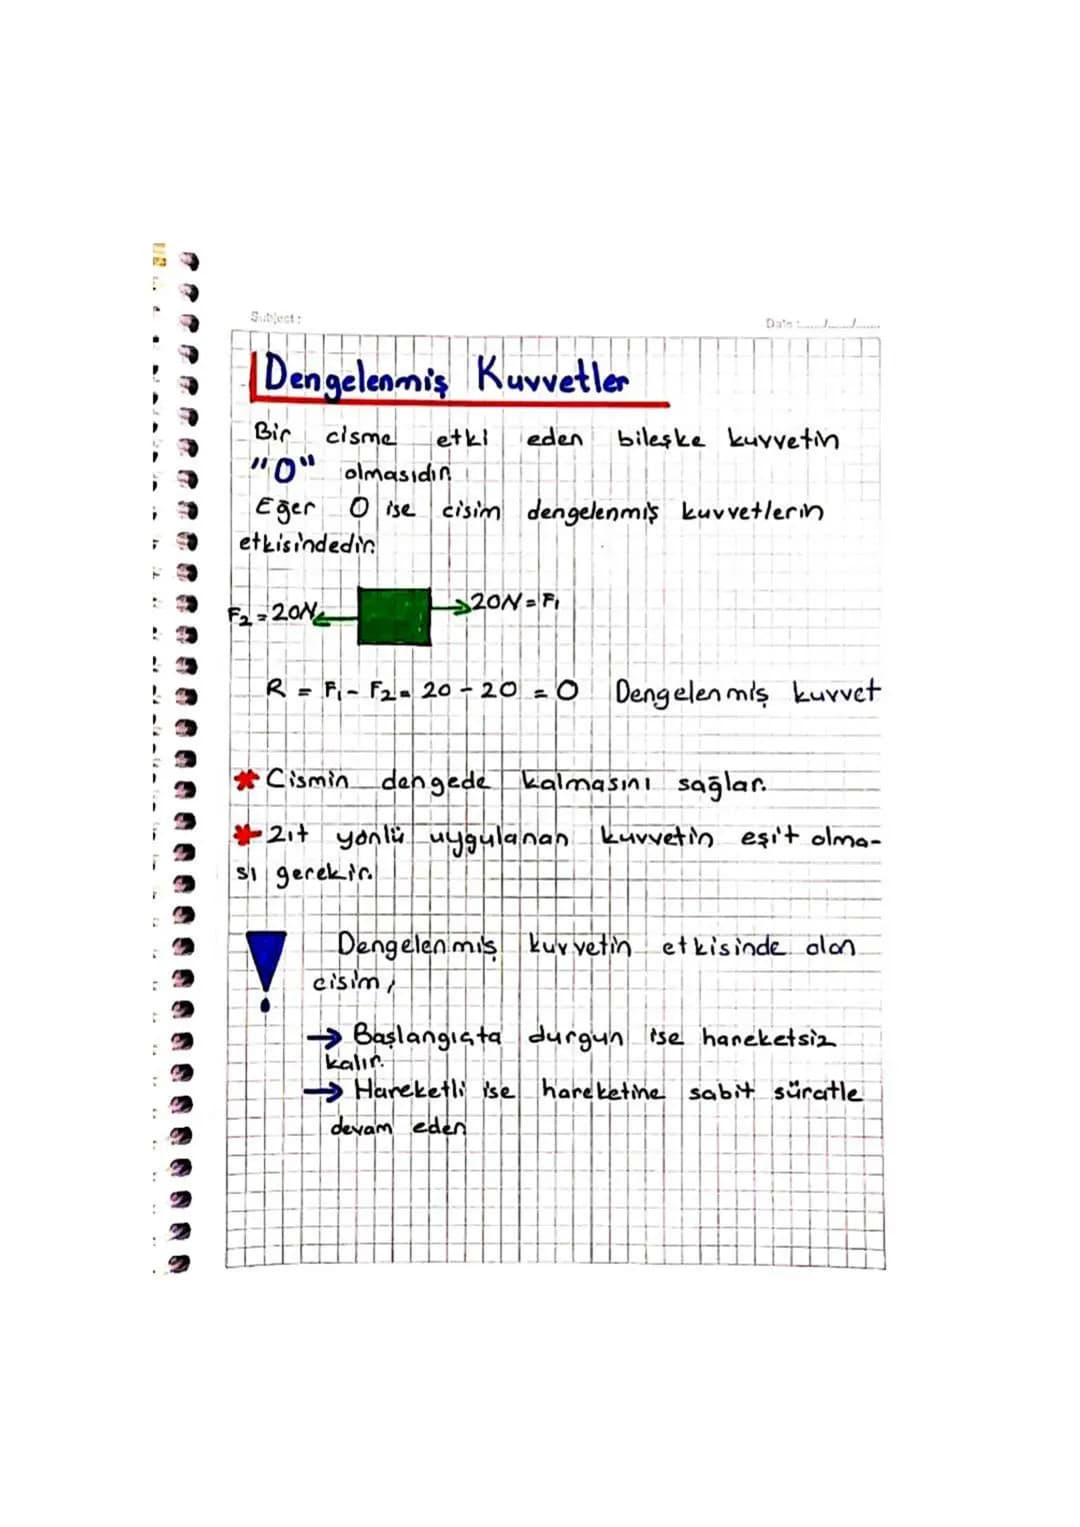 Subject:
Date:......./......./.......
Dengelenmiş Kuvvetler
Bir cisme etki eden bileşke kuvvetin
"0" olmasıdır.
Eğer 0 ise cisim dengelenmiş kuvvetlerin
etkisindedir.
F₂ = 20N
20N = F₁
R = F₁ - F₂ = 20 - 20 = 0 Dengelenmiş kuvvet
* Cismin dengede kalmasını sağlar.
* Zıt yönlü uygulanan kuvvetin eşit olma-
sı gerekir.
! Dengelenmiş kuvvetin etkisinde olan
cisim,
→ Başlangıçta durgun ise hareketsiz
kalır.
→ Hareketli ise hareketine sabit süratle
devam eder.